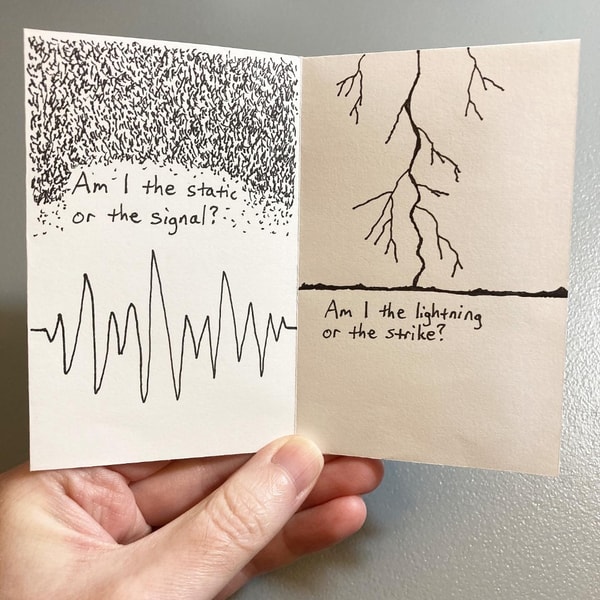 Am I the static
or the signal?
Am I the lightning
or the strike?